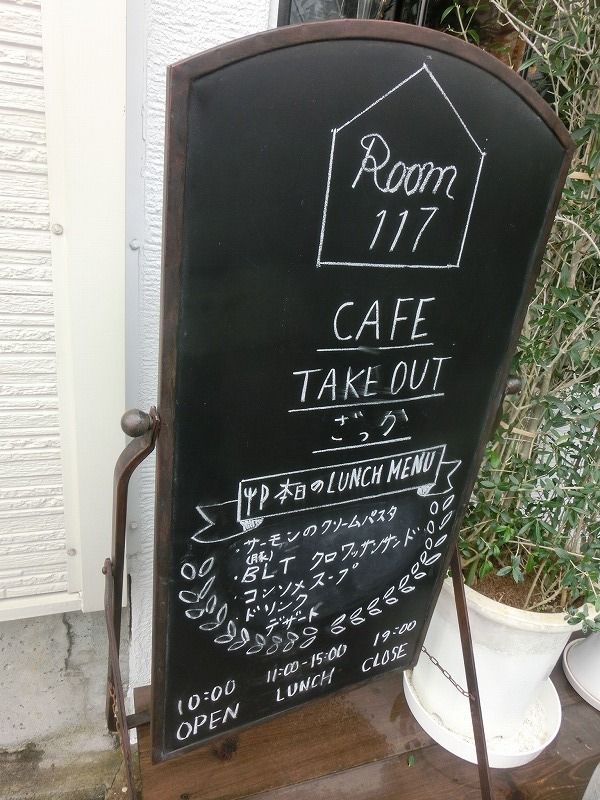 Room
117
CAFE
TAKE OUT
ざっか
本日のLUNCH MENU
・サーモンのクリームパスタ
(豚)
・BLT クロワッサンサンド
・コンソメスープ
ドリンク
デザート
10:00 11:00-15:00 19:00
OPEN LUNCH CLOSE